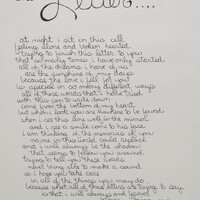 a Letter....
at night i sit in this cell
feeling alone and broken hearted
trying to finish this letter to you
that so many times i have only started
all of the dreams i have of us
are the sunshine of my days
because the love i feel for you
is special in so many different ways
all of these words that i have tried
with this pen to write down
come from the bottom of my heart
but when i look you are nowhere to be found
when i see this love well in the mirror
and i see a smile come to his face
i am thinking of the memories of you
no one on this world could replace
and i will always be the shadow
that seems to follow you around
trying to tell you these words
never being able to make a sound
so i hope you take care
in all of the things you may do
because what all of these letters are trying to say
is that i will always and forever